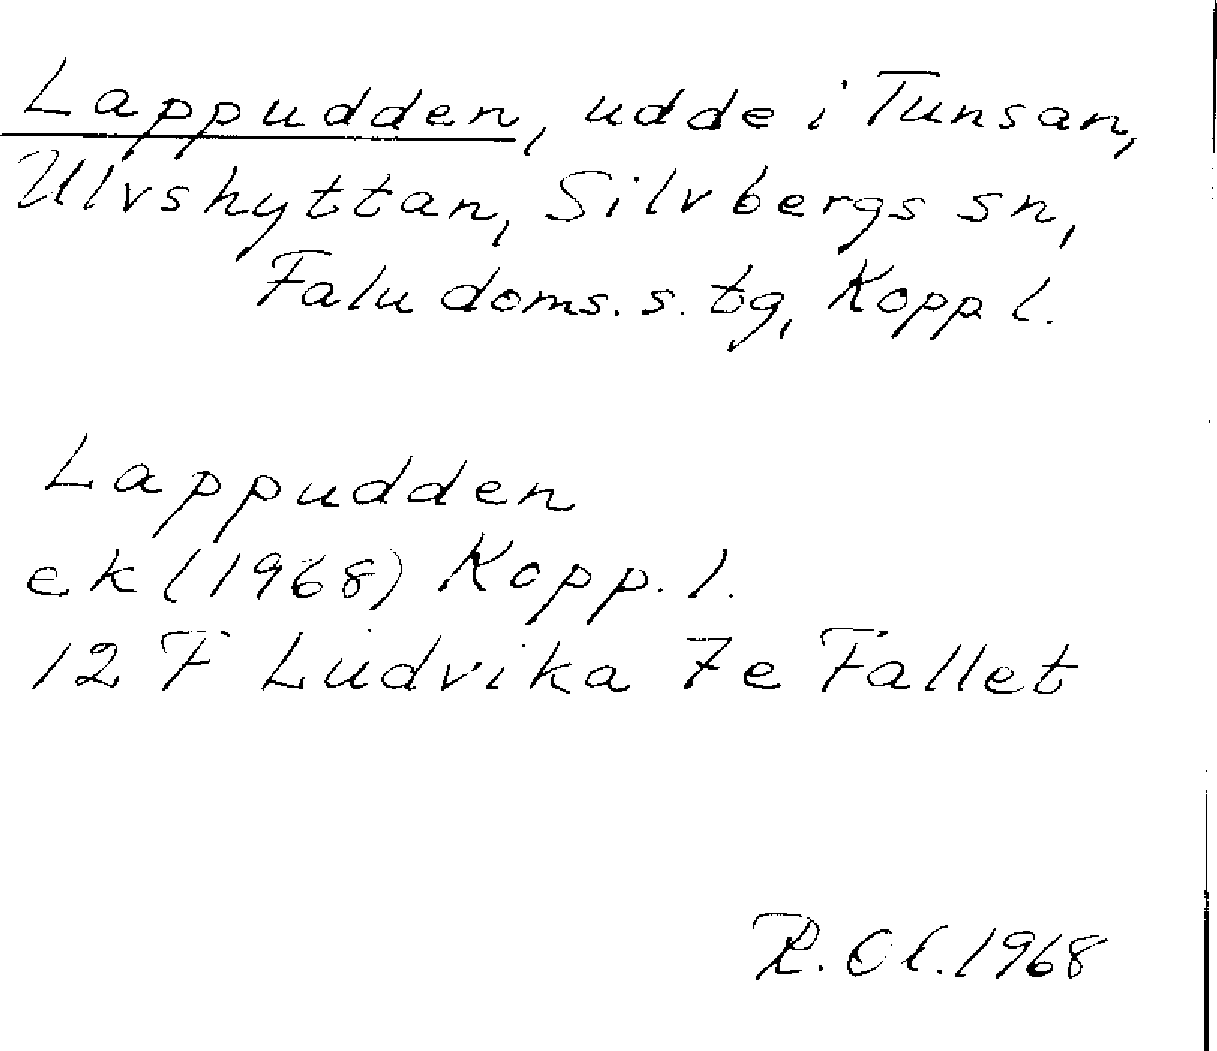 Lappudden, udde i Tunsan,
Ulvshyttan, Silvbergs sn,
Falu doms. s. tg, Kopp l.
Lappudden
ek (1968) Kopp. l.
12 F Ludvika 7e Fallet
R. Ol. 1968